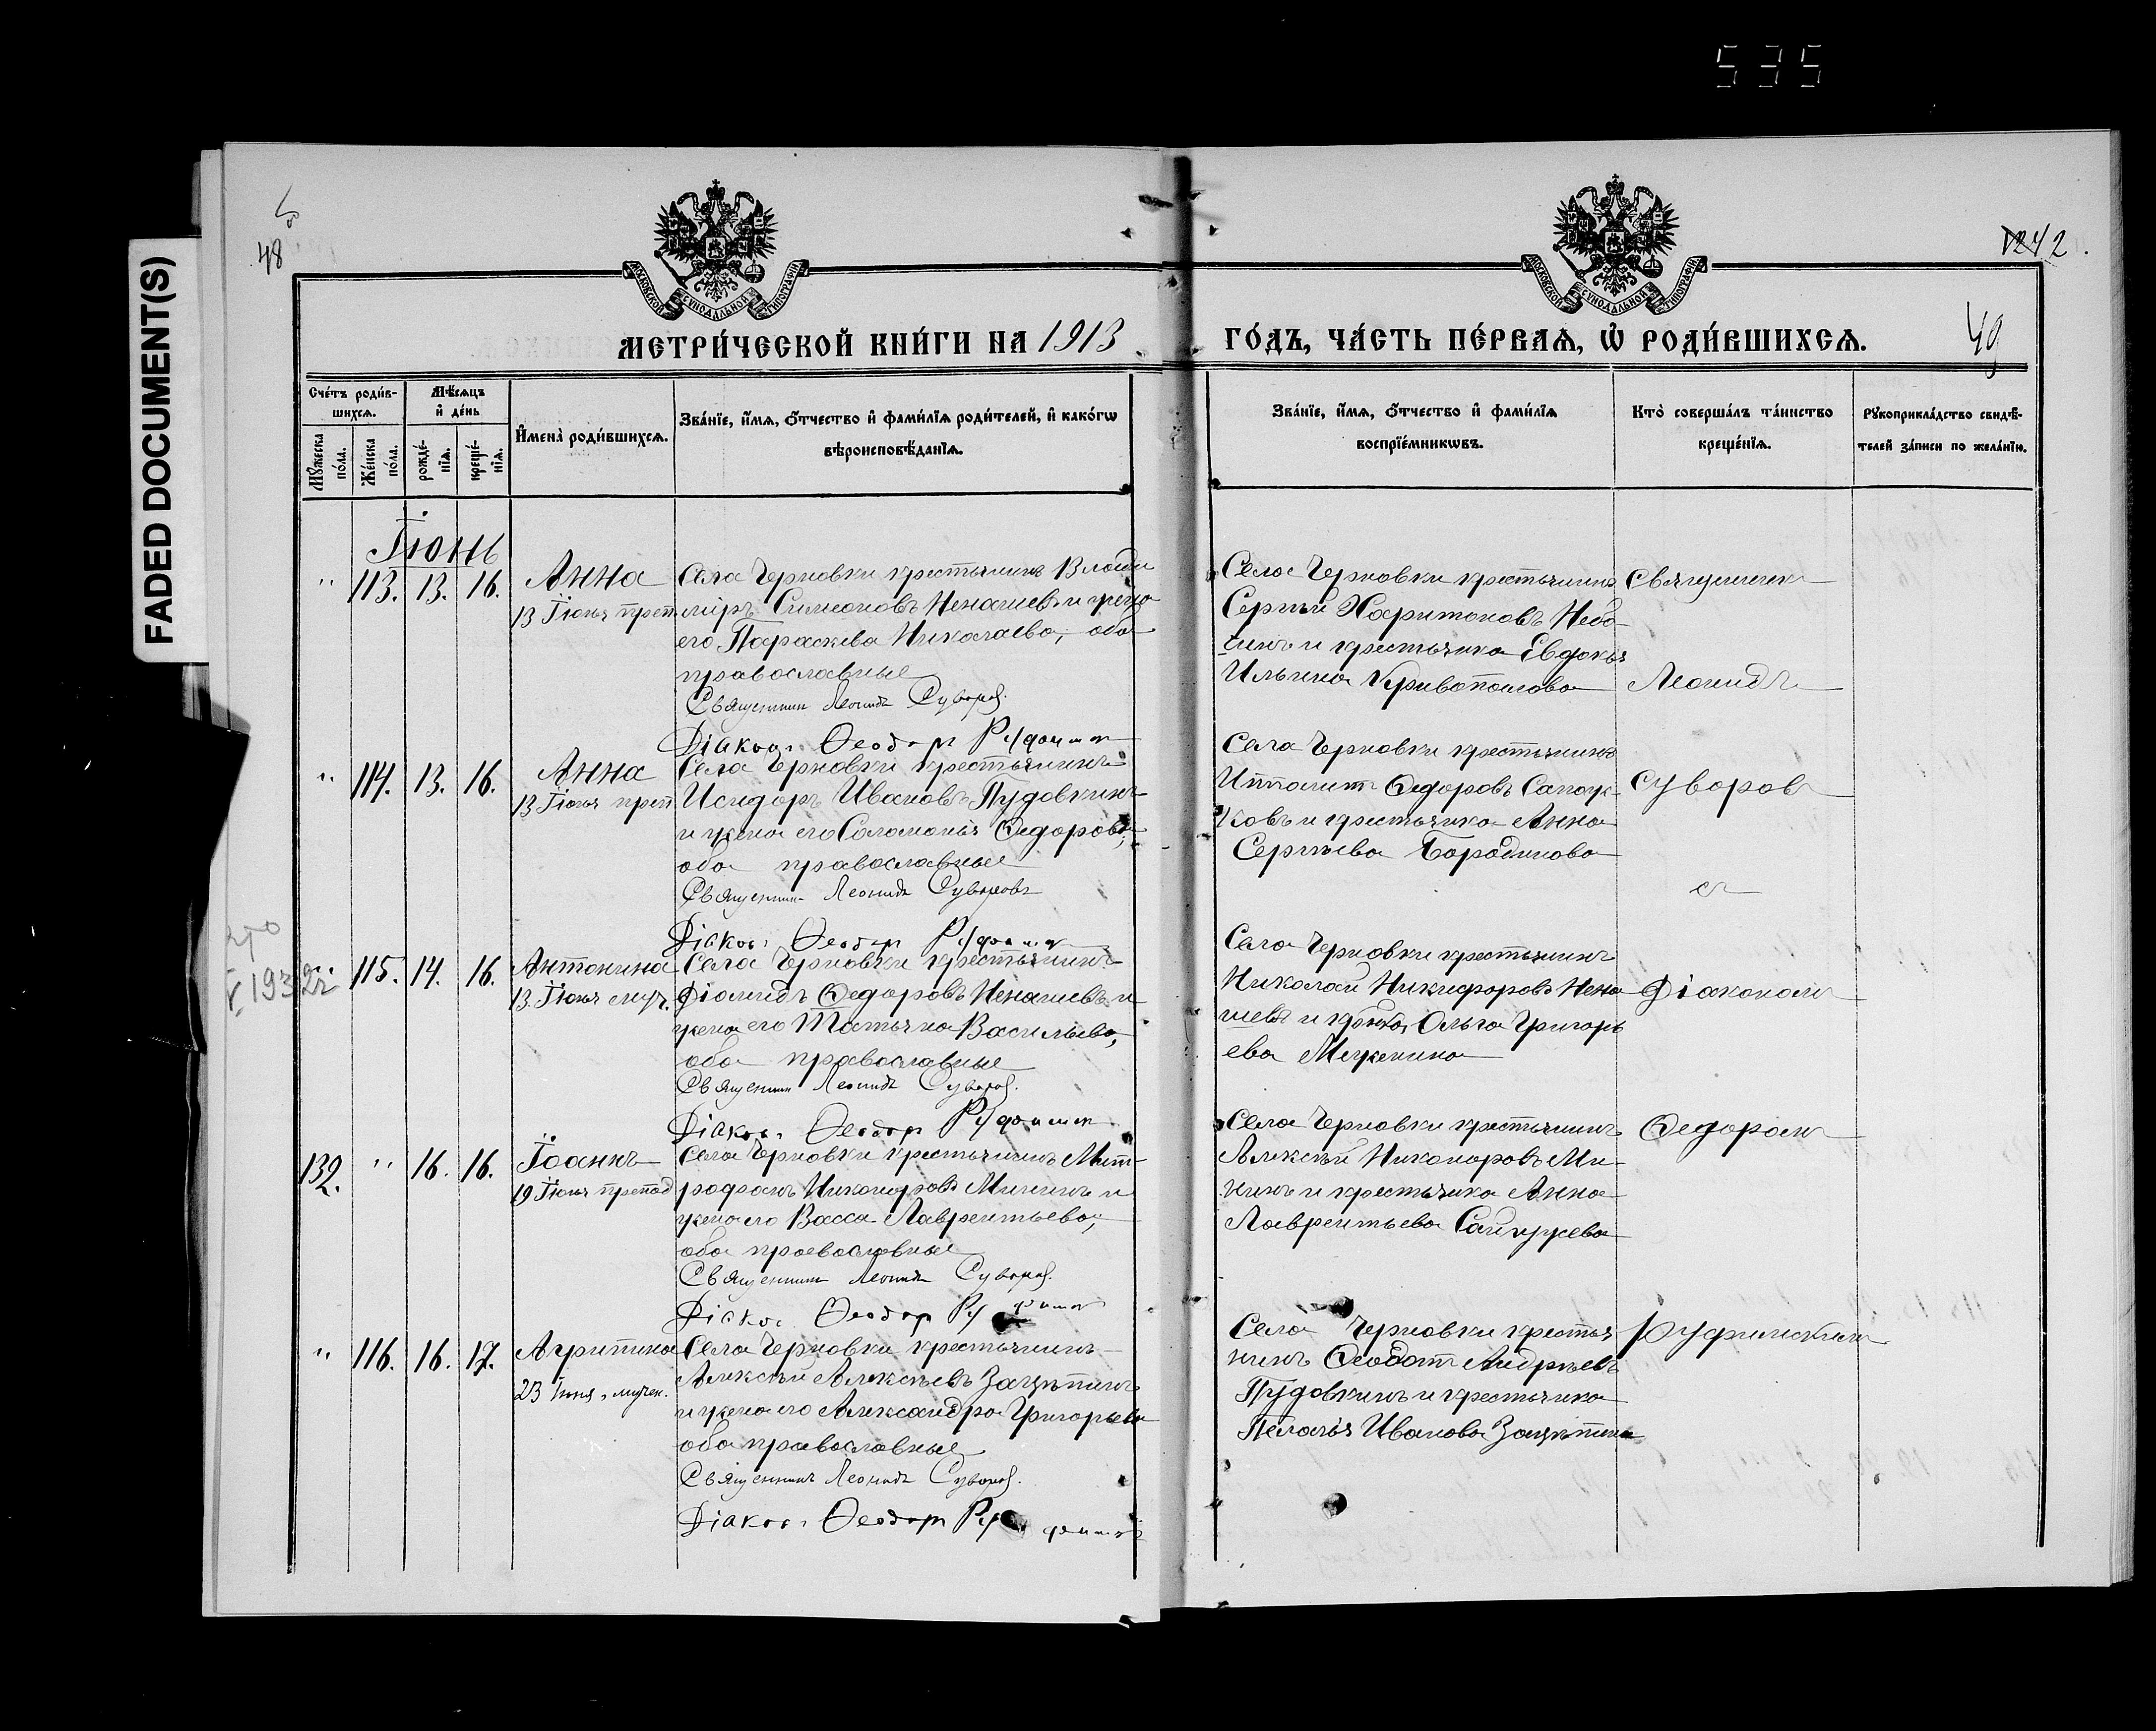 535
FADED DOCUMENT(S)
48
1242.
49
МОСКОВСКОЙ СѴНОДАЛЬНОЙ ТИПОГРАФІИ
МОСКОВСКОЙ СѴНОДАЛЬНОЙ ТИПОГРАФІИ
МЕТРИ́ЧЕСКОЙ КНИ́ГИ НА 1913 ГО́ДЪ, ЧА́СТЬ ПЕ́РВАѦ, Ѡ҆ РОДИ́ВШИХСѦ.
Сче́тъ роди́в-
шихсѧ.
Мѣ́сѧцъ
и҆ де́нь
Мꙋ́жеска
по́ла.
Же́нска
по́ла.
рожде́-
нїѧ.
креще́-
нїѧ.
И҆мена̀ роди́вшихсѧ.
Зва́нїе, и҆́мѧ, ѻ҆́тчество и҆ фами́лїѧ роди́телей, и҆ како́гѡ
вѣроисповѣ́данїѧ.
Зва́нїе, и҆́мѧ, ѻ҆́тчество и҆ фами́лїѧ
воспрїе́мникѡвъ.
Кто̀ соверша́лъ та́инство
креще́нїѧ.
Рꙋкоприкла́дство свидѣ́-
телей за́писи по жела́нїю.
Іюнь
" 113. 13. 16. Анна
13 Іюня преп.
Села Черновки крестьянинъ Влади
міръ Симеоновъ Ненашевъ и жена
его Параскева Николаева, оба
православные
Священникъ Леонидъ Суворов.
Діаконъ Ѳеодоръ
Села Черновки крестьянинъ
Сергѣй Харитоновъ Небо-
и крестьянка Евдокія
Ильина Кривопалова
Священникъ
Леонидъ
" 114. 13. 16. Анна
13 Іюня преп
Села Черновки крестьянинъ
Исидоръ Ивановъ Пудовкинъ
и жена его Соломонія Ѳедорова,
оба православные
Священникъ Леонидъ Суворовъ
Діаконъ Ѳеодоръ
Села Черновки крестьянинъ
Ипполитъ Ѳедоровъ Сапож-
ковъ и крестьянка Анна
Сергѣева Бородинова
Суворовъ
съ
1932
" 115. 14. 16. Антонина
13 Іюня муч.
Села Черновки крестьянинъ
Діомидъ Ѳедоровъ Ненашевъ и
жена его Татьяна Васильева,
оба православные
Священникъ Леонидъ Суворов.
Діаконъ Ѳеодоръ
Села Черновки крестьянинъ
Николай Никифоровъ Нена
шевъ и Ольга Григорь
ева
Діакономъ
132. " 16. 16. Іоаннъ
19 Іюня препод
Села Черновки крестьянинъ Мит-
рофанъ Никаноровъ Мининъ и
жена его Васса Лаврентьева,
оба православные
Священникъ Леонидъ Суворов.
Діаконъ Ѳеодоръ
Села Черновки крестьянинъ
Алексѣй Никаноровъ Ми-
нинъ и крестьянка Анна
Лаврентьева
Ѳедоромъ
" 116. 16. 17. Агрипина
23 Іюня, мучен.
Села Черновки крестьянинъ
Алексѣй Алексѣевъ Зацѣпинъ
и жена его Александра Григорьева
оба православные
Священникъ Леонидъ Суворов.
Діаконъ Ѳеодоръ
Села Черновки крестья
нинъ Ѳеодотъ Андреевъ
Пудовкинъ и крестьянка
Пелагія Иванова Зацѣпина